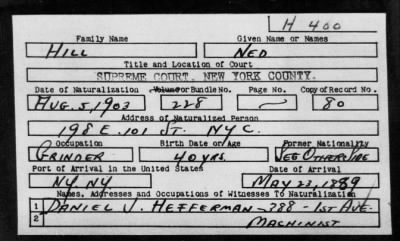 H 400
Family Name Given Name or Names
HILL NED
Title and Location of Court
SUPREME COURT, NEW YORK COUNTY.
Date of Naturalization Volume or Bundle No. Page No. Copy of Record No.
AUG. 5, 1903 228 80
Address of Naturalized Person
198 E. 101 ST. NYC.
Occupation Birth Date or Age Former Nationality
GRINDER 40 YRS. SEE OTHER SIDE
Port of Arrival in the United States Date of Arrival
NY. NY MAY 23, 1889
Names, Addresses and Occupations of Witnesses To Naturalization
1 DANIEL J. HEFFERMAN - 388 - 1ST AVE.
2 MACHINIST